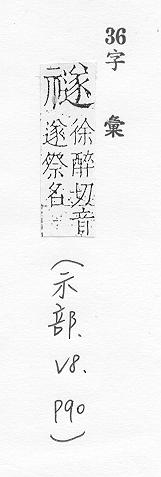 36字彙
禭
徐醉切音
遂祭名
（示部.V8.P90）